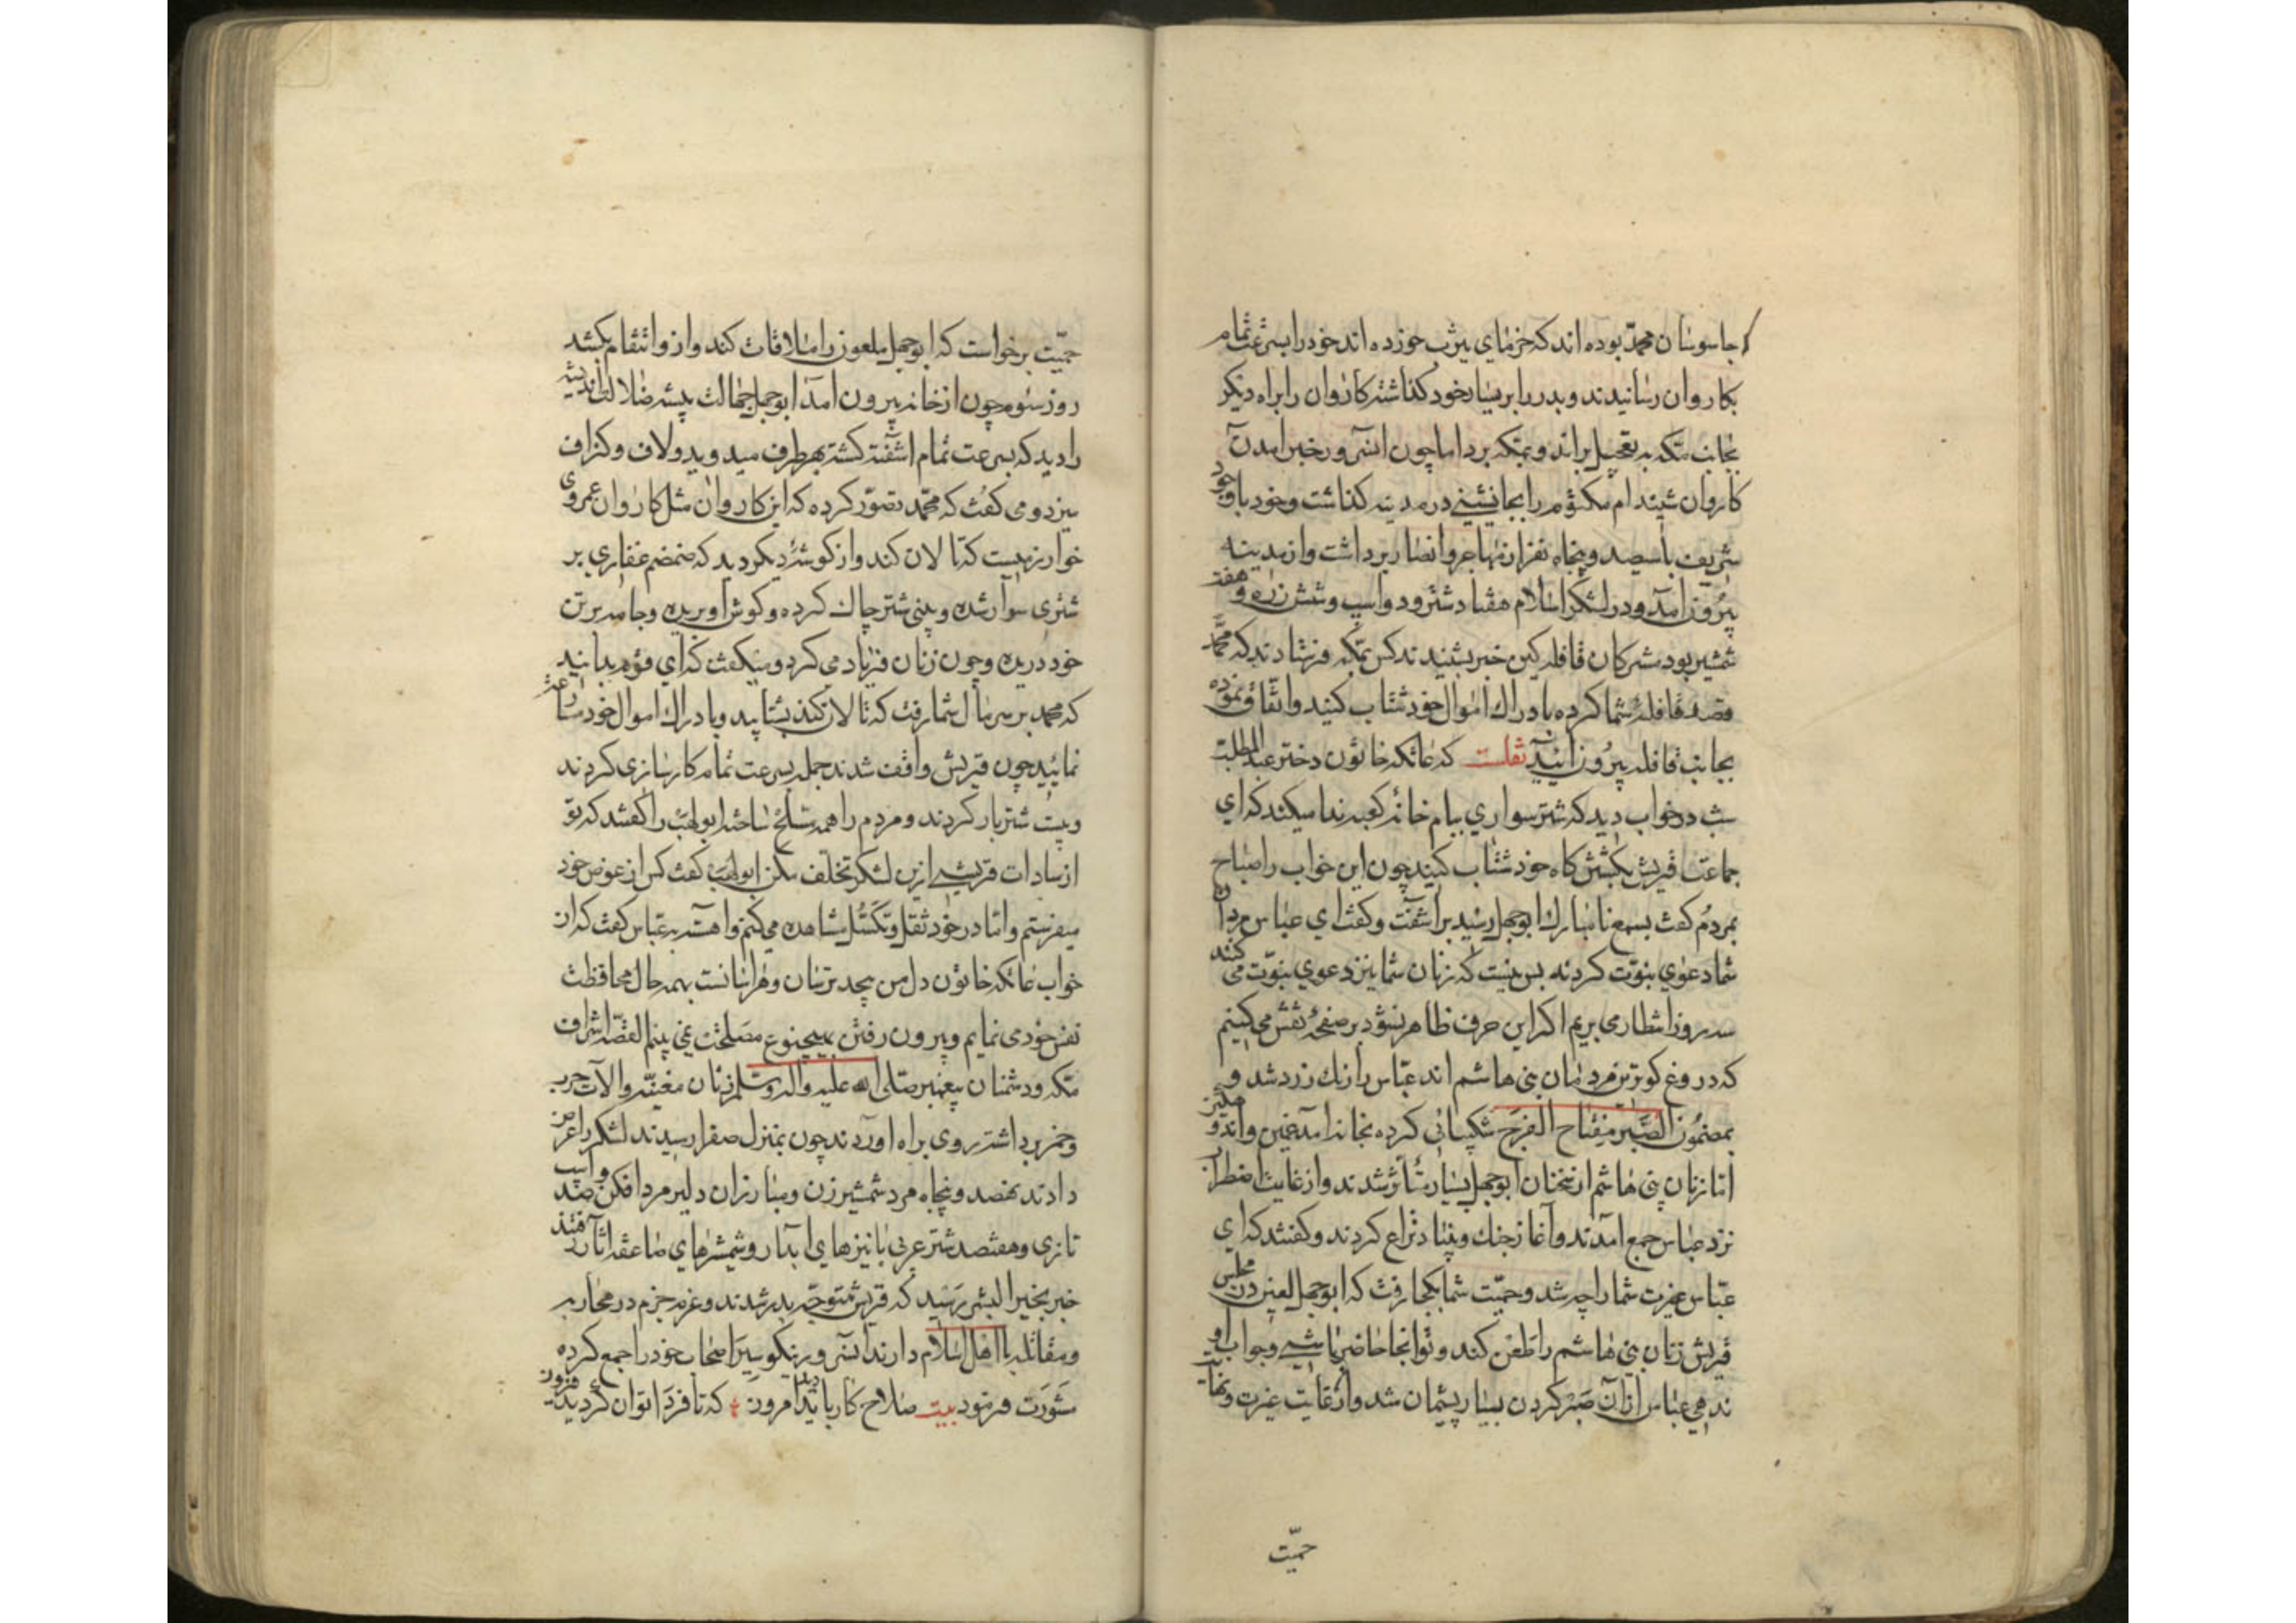 جاسوسان محمد بوده اند که خرمای یثرب خورده اند خود را بسرعت تمام
بکاروان رسانیدند و بدر را بر یسار خود گذاشته کاروان را براه دیگر
بجانب مکه به تعجیل براند و بمکه برد اما چون انسرور خبر امدن
کاروان شنید ام مکتوم را بجانشینی در مدینه گذاشت و خود با وجود
شریف با سیصد و پنجاه نفر از مهاجر و انصار برداشت و از مدینه
بیرون امد و در لشکر اسلام هفتاد شتر و دو اسپ و شش زره و هفت
شمشیر بود مشرکان قافله کین خبر بشنیدند کس بمکه فرستادند که محمد
قصد قافله شما کرده بادراک اموال خود شتاب کنید و اتفاق نموده
بجانب قافله بیرون ائید نقلست که عاتکه خاتون دختر عبد المطلب
شب در خواب دید که شتر سواری ببام خانه کعبه ندا میکند که ای
جماعت قریش بکشتن کاه خود شتاب کنید چون این خواب را صباح
بمردم گفت بسمع نامبارک ابوجهل رسید براشفت و گفت ای عباس مردان
شما دعوی نبوت کردند بس نیست که زنان شما نیز دعوی نبوت می کنند
سه روز انتظار می بریم اکر این حرف ظاهر نشود بر صفحه نقش می کنیم
که دروغ کوترین مردمان بنی هاشم اند عباس را رنک زرد شد و
بمضمون الصبر مفتاح الفرج شکیبائی کرده بخانه امد غمین و اندو
اما زنان بنی هاشم از سخنان ابوجهل بسیار متأثر شدند و از غایت اضطراب
نزد عباس جمع امدند و آغاز جنک و بنیاد نزاع کردند و گفتند که ای
عباس غیرت شما را چه شد و حمیت شما بکجا رفت که ابوجهل لعین در مجلس
قریش زنان بنی هاشم را طعن کند و تو انجا حاضر باشی و جواب او
ندهی عباس از آن صبر کردن بسیار پشیمان شد و از غایت غیرت و نهایت
حمیت
حمیت برخواست که ابوجهل ملعون را ملاقات کند و از و انتقام بکشد
روز سوم چون از خانه بیرون امد ابوجهل جهالت پیشه ضلالت اندیشه
را دید که بسرعت تمام اشفته کشته بهر طرف میدوید و لاف و کزاف
میزد و می گفت که محمد تصور کرده که این کاروان مثل کاروان عمروی
خوارزمیست که تالان کند و از کوشهٔ دیکر دید که ضمضم غفاری بر
شتری سوار شده و بینی شتر چاک کرده و کوش او بریده و جامه بر تن
خود دریده و چون زنان فریاد می کرد و میگفت که ای قوم بدانید
که محمد بر سر مال شما رفت که تالان کند بشتابید و بادراک اموال خود مسارعت
نمائید چون قریش واقف شدند جمله بسرعت تمام کارسازی کردند
و بیست شتر بار کردند و مردم را همه مسلح ساخته ابو لهب را گفتند که تو
از سادات قریشی ازین لشکر تخلف مکن ابو لهب گفت کس از عوض خود
میفرستم و اما در خود ثقل و تکسل مشاهده می کنم و اهسته به عباس گفت که از
خواب عاتکه خاتون دل من بیحد ترسان و هراسانست بهمه حال محافظت
نفس خود می نمایم و بیرون رفتن بهیچنوع مصلحت نمی بینم القصه اشراف
مکه و دشمنان پیغمبر صلی الله علیه و اله و سلم زنان مغنیه و الات حرب
و خمر برداشته روی براه اوردند چون بمنزل صفرا رسیدند لشکر را عرض
دادند نهصد و پنجاه مرد شمشیر زن و مبارزان دلیر مرد افکن و صد اسپ
تازی و هفتصد شتر عربی با نیزهای ابدار و شمشیرهای صاعقه آثار
خبر بخیر البشر رسید که قریش متوجه بدر شدند و عزم جزم در محاربه
و مقاتله با اهل اسلام دارند انسرور نیکو سیر اصحاب خود را جمع کرده
مشورت فرمود بیت صلاح کار باید دید امروز که تا فردا توان کردید فیروز